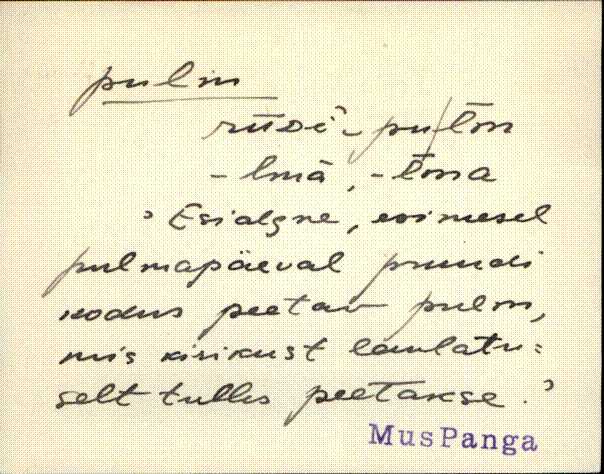 pulm
rüüsi- pulm
- lmā, - lma
' Esialgne, esimesel
pulmapäeval pruudi
kodus peetav pulm,
mis kirikust laulatu=
selt tulles peetakse.'
MusPanga